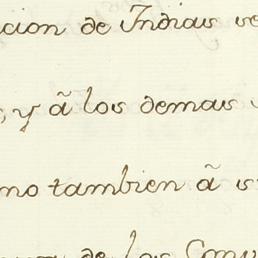 cion de Indias se
, y ã los demas
no tambien ã s
de los Conv